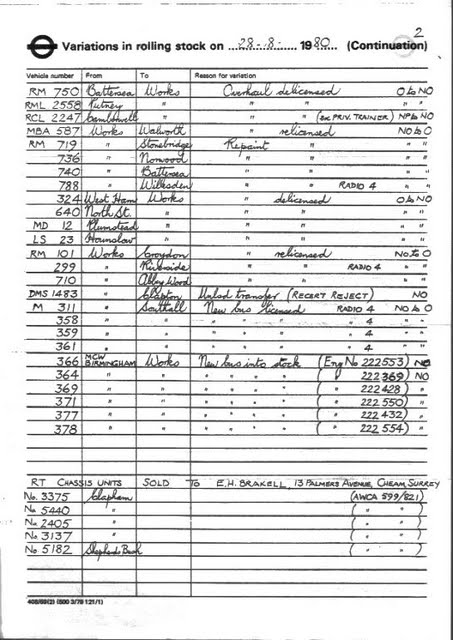 2
Variations in rolling stock on 28-8- 1980 (Continuation)
Vehicle number From To Reason for variation
RM 750 Battersea Works Overhaul delicensed O to NO
RML 2558 Putney " " " " "
RCL 2247 Camberwell " " " (EX PRIV. TRAINER) NP to NO
MBA 587 Works Walworth " relicensed NO to O
RM 719 " Stonebridge Repaint " " "
736 " Norwood " " " "
740 " Battersea " " " "
788 " Willesden " " RADIO 4 " "
324 West Ham Works " delicensed O to NO
640 North St. " " " " "
MD 12 Plumstead " " " " "
LS 23 Hounslow " " " " "
RM 101 Works Croydon " relicensed NO to O
299 " Riverside " " RADIO 4 " "
710 " Abbey Wood " " " "
DMS 1483 " Clapton Unlsd transfer (RECERT REJECT) NO
M 311 " Southall New bus licensed RADIO 4 NO to O
358 " " " " " " 4 " "
359 " " " " " " 4 " "
361 " " " " " " 4 " "
366 MCW BIRMINGHAM Works New bus into stock (Eng No 222553) NO
364 " " " " " " ( " 222369) NO
369 " " " " " " ( " 222428) "
371 " " " " " " ( " 222550) "
377 " " " " " " ( " 222432) "
378 " " " " " " ( " 222554) "
RT CHASSIS UNITS SOLD TO E.H. BRAKELL, 13 PALMERS AVENUE, CHEAM, SURREY
No. 3375 Clapham (AWCA 599/821)
No 5440 " ( " " )
No 2405 " ( " " )
No. 3137 " ( " " )
No 5182 Shepherds Bush ( " " )
408/69(2) (500 3/79 121/1)